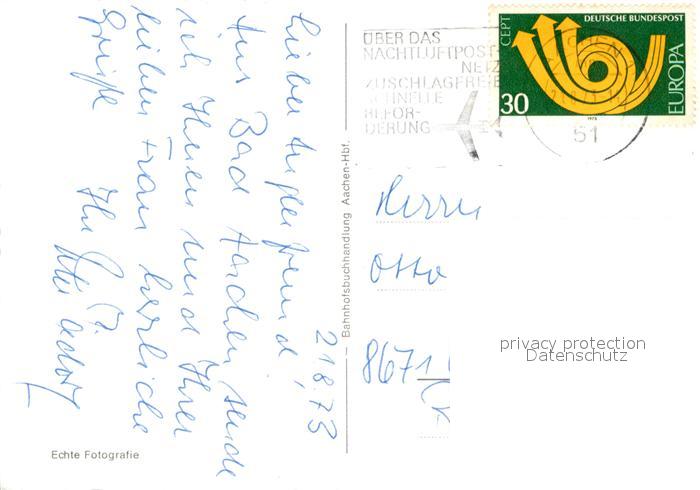 21.8.73
Lieber Anglerfreund,
Aus Bad Aachen sende
ich Ihnen und Ihrer
lieben Frau herzliche
Grüße
Ihr
Echte Fotografie
Bahnhofsbuchhandlung Aachen-Hbf.
ÜBER DAS
NACHTLUFTPOST-
NETZ
ZUSCHLAGFREIE
SCHNELLE
BEFÖR-
DERUNG
51
DEUTSCHE BUNDESPOST
CEPT
EUROPA
30
1973
Herrn
Otto
8671
privacy protection
Datenschutz